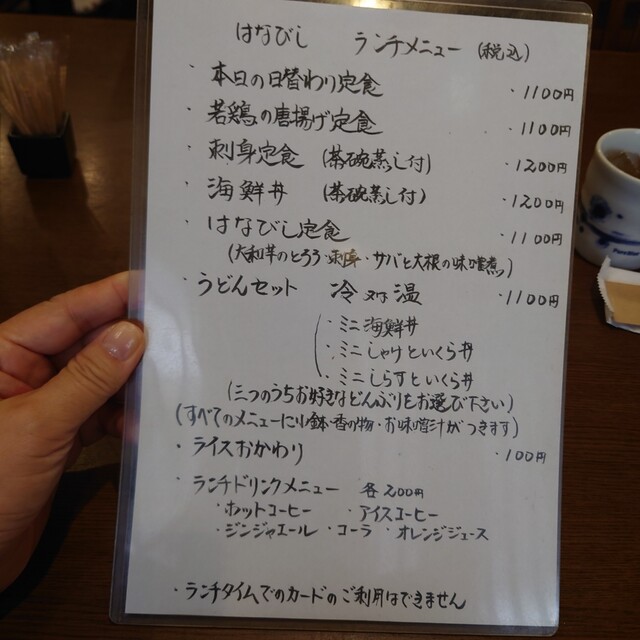 はなびし ランチメニュー (税込)
・本日の日替わり定食 ・1100円
・若鶏の唐揚げ定食 ・1100円
・刺身定食 (茶碗蒸し付) ・1200円
・海鮮丼 (茶碗蒸し付) ・1200円
・はなびし定食 ・1100円
(大和芋のとろろ・刺身・サバと大根の味噌煮)
・うどんセット 冷又は温 ・1100円
・ミニ海鮮丼
・ミニしゃけといくら丼
・ミニしらすといくら丼
(三つのうちお好きなどんぶりをお選び下さい)
(すべてのメニューに小鉢・香の物・お味噌汁がつきます)
・ライスおかわり ・100円
・ランチドリンクメニュー 各200円
・ホットコーヒー ・アイスコーヒー
・ジンジャエール ・コーラ ・オレンジジュース
・ランチタイムでのカードのご利用はできません